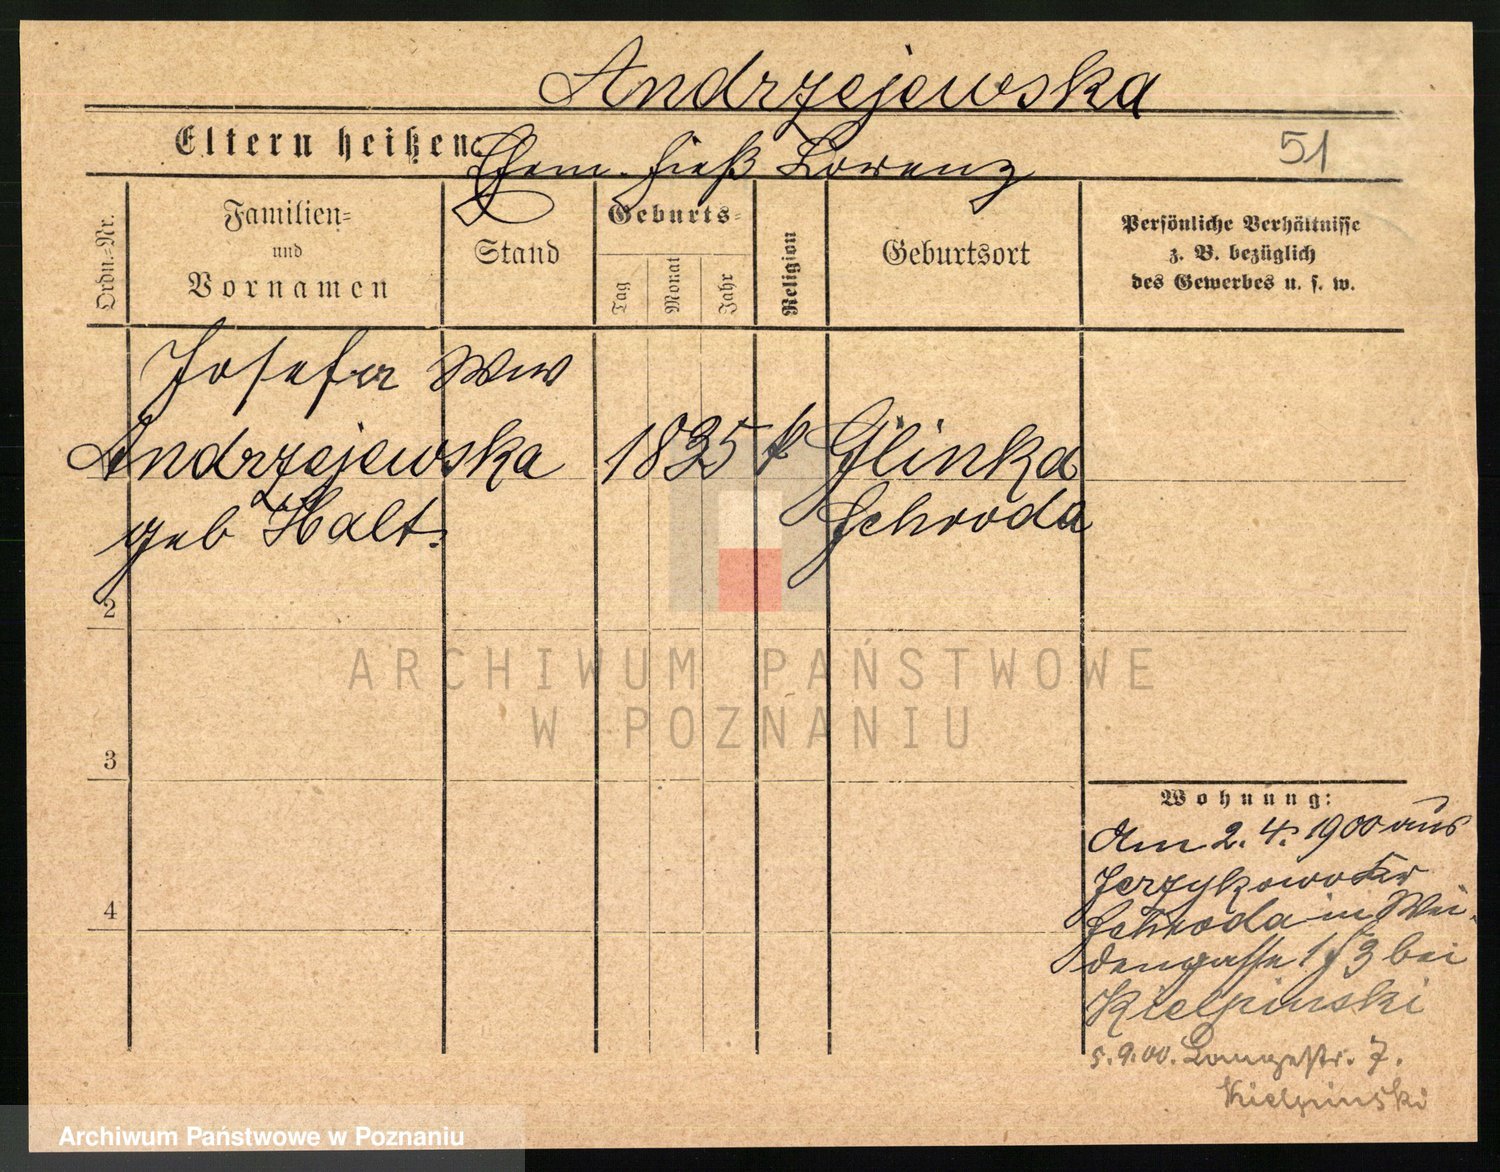 Andrzejewska
Eltern heißen:
51
Ehem. hieß Lorenz
Ordn.-Nr.
Familien-
und
Vornamen
Stand
Geburts-
Tag
Monat
Jahr
Religion
Geburtsort
Persönliche Verhältnisse
z. B. bezüglich
des Gewerbes u. s. w.
Josefa Ww
Andrzejewska 1835 k Glinka
geb Halt. Schroda
2
3
4
Wohnung:
Am 2.4.1900 aus
Jerzykowo Kr
Schroda in Wei-
dengasse 1 bei
Kielpinski
5.9.00. Langestr. 7.
Kielpinski
ARCHIWUM PAŃSTWOWE
W POZNANIU
Archiwum Państwowe w Poznaniu